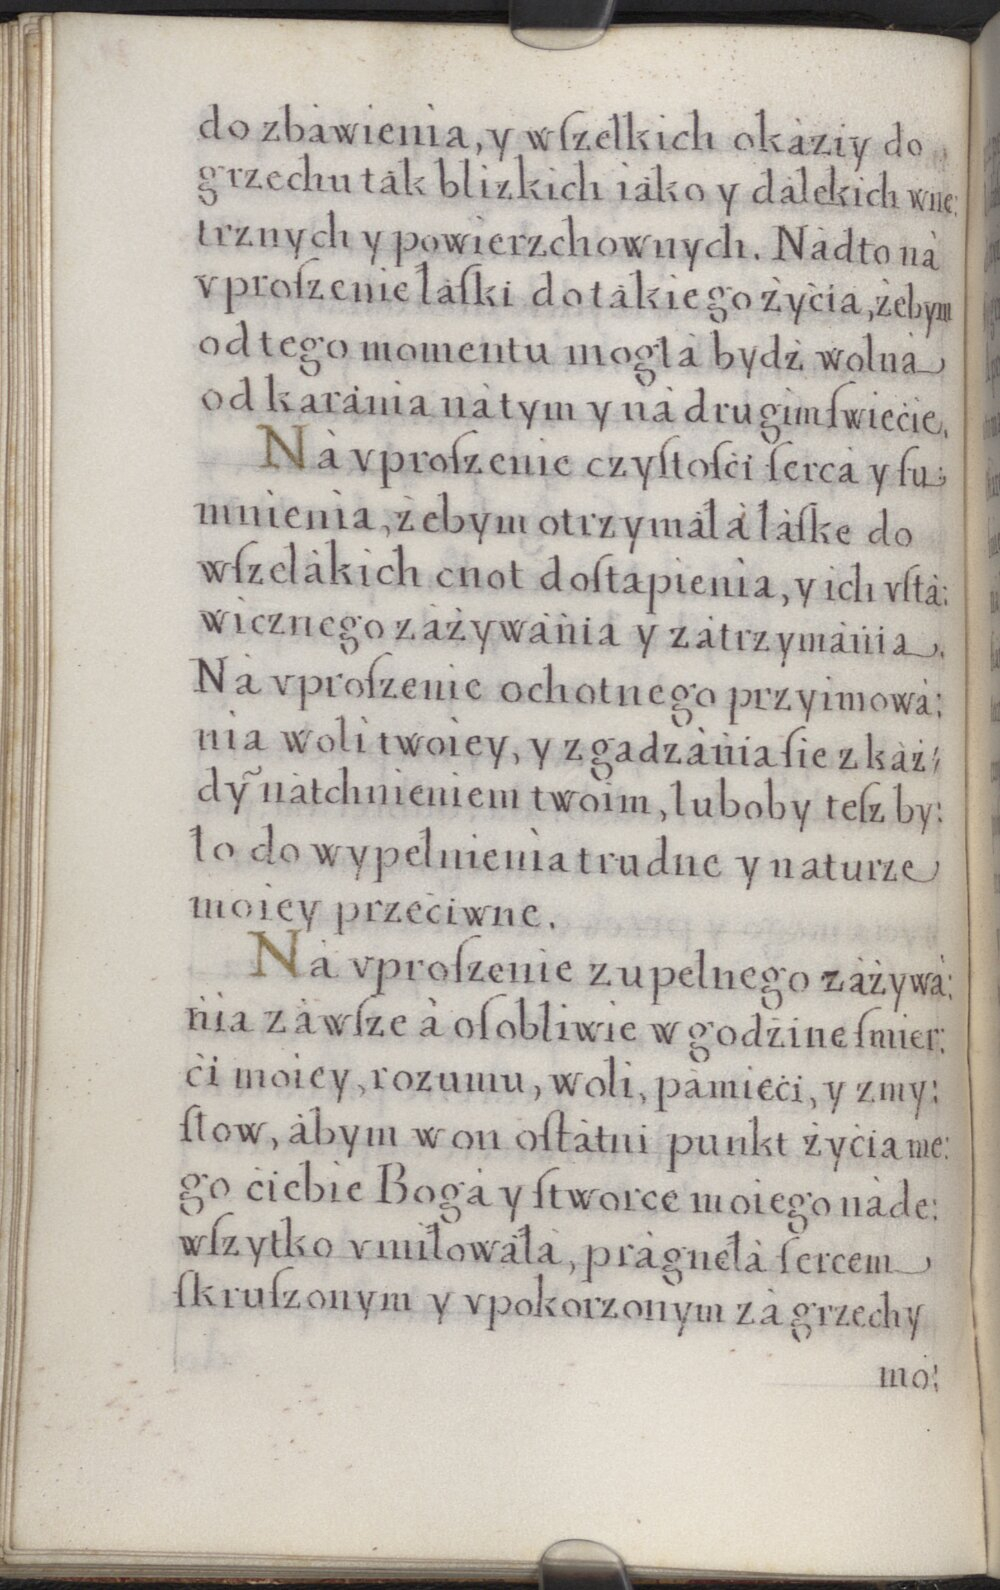 do zbáwieniá, y wſzelkich okáziy do
grzechu ták blizkich iáko y dálekich wne:
trznych y powierzchownych. Nádto ná
vproſzenie łáſki do tákiego żyćia, żebym
od tego momentu mogłá bydź wolná
od karánia ná tym y ná drugim ſwiećie.
Ná vproſzenie czyſtoſći ſercá y ſu:
mnieniá, żebym otrzymáłá łáſke do
wſzelákich cnot doſtapieniá, y ich vſtá:
wicznego záżywáńia y zátrzymáńia.
Ná vproſzenie ochotnego przyimowá:
nia woli twoiey, y zgadzáńia ſie z káż:
dy̴ nátchnieniem twoim, luboby teſz by:
ło do wypełnieniá trudne y naturze
moiey przećiwne.
Ná vproſzenie zupełnego záżywá:
ńia záwſze á oſobliwie w godźine ſmier:
ći moiey, rozumu, woli, pámiećі, y zmy:
ſłow, ábym w on oſtátni punkt żyćia me:
go ćiebie Bogá y ſtworce moiego náde:
wſzytko vmiłowáłá, prágnełá ſercem
ſkruſzonym y vpokorzonym zá grzechy
mo: